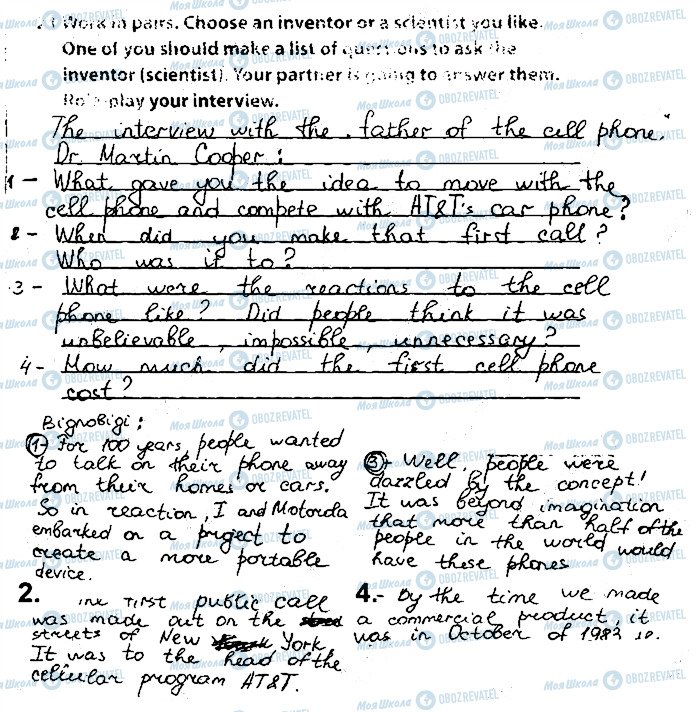 Work in pairs. Choose an inventor or a scientist you like.
One of you should make a list of questions to ask the
inventor (scientist). Your partner is going to answer them.
Role-play your interview.
The interview with the father of the cell phone.
Dr. Martin Cooper:
1 - What gave you the idea to move with the
cell phone and compete with AT&T's car phone?
2 - When did you make that first call?
Who was it to?
3 - What were the reactions to the cell
phone like? Did people think it was
unbelievable, impossible, unnecessary?
4 - How much did the first cell phone
cost?
Відповіді:
1 - For 100 years, people wanted
to talk on their phone away
from their homes or cars.
So in reaction, I and Motorola
embarked on a project to
create a more portable
device.
2. The first public call
was made out on the
streets of New York
It was to the head of the
cellular program AT&T.
3 - Well, people were
dazzled by the concept!
It was beyond imagination
that more than half of the
people in the world would
have these phones
4. - By the time we made
a commercial product, it
was in October of 1983 р.
МояШкола OBOZREVATEL